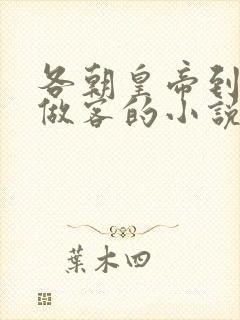 各朝皇帝到
做客的小說
葉木四